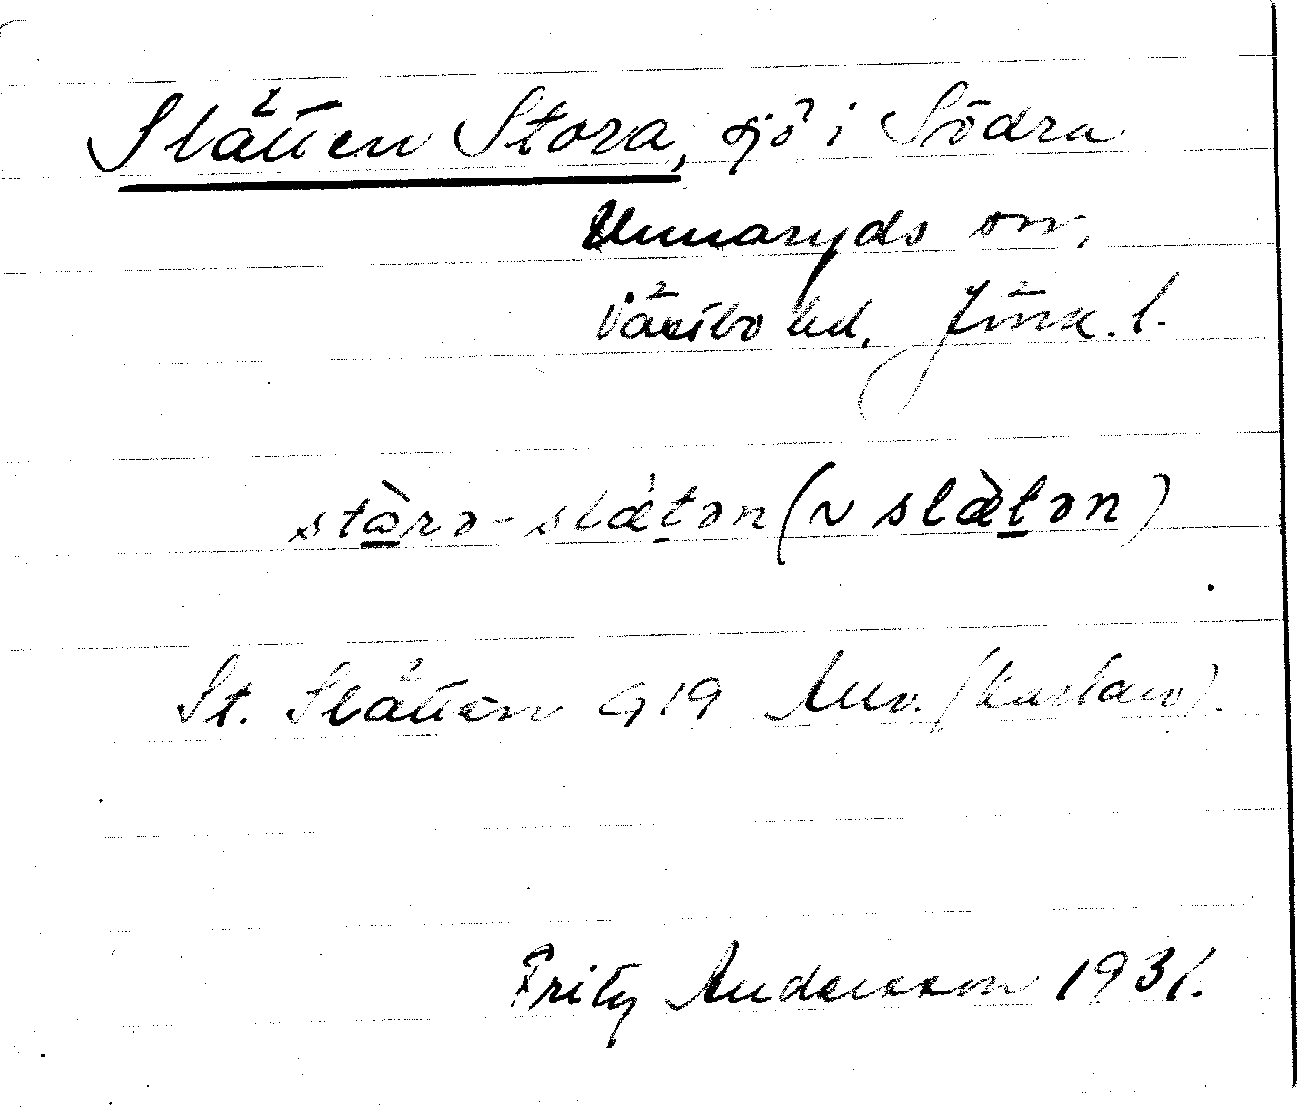 Slätten Stora, sjö i Södra
Unnaryds sn,
Västbo hd, Jönk. l.
stàrə-slætən (~ slætən)
St. Slätten G19 Auv. (kartan).
Fritz Andersson 1931.